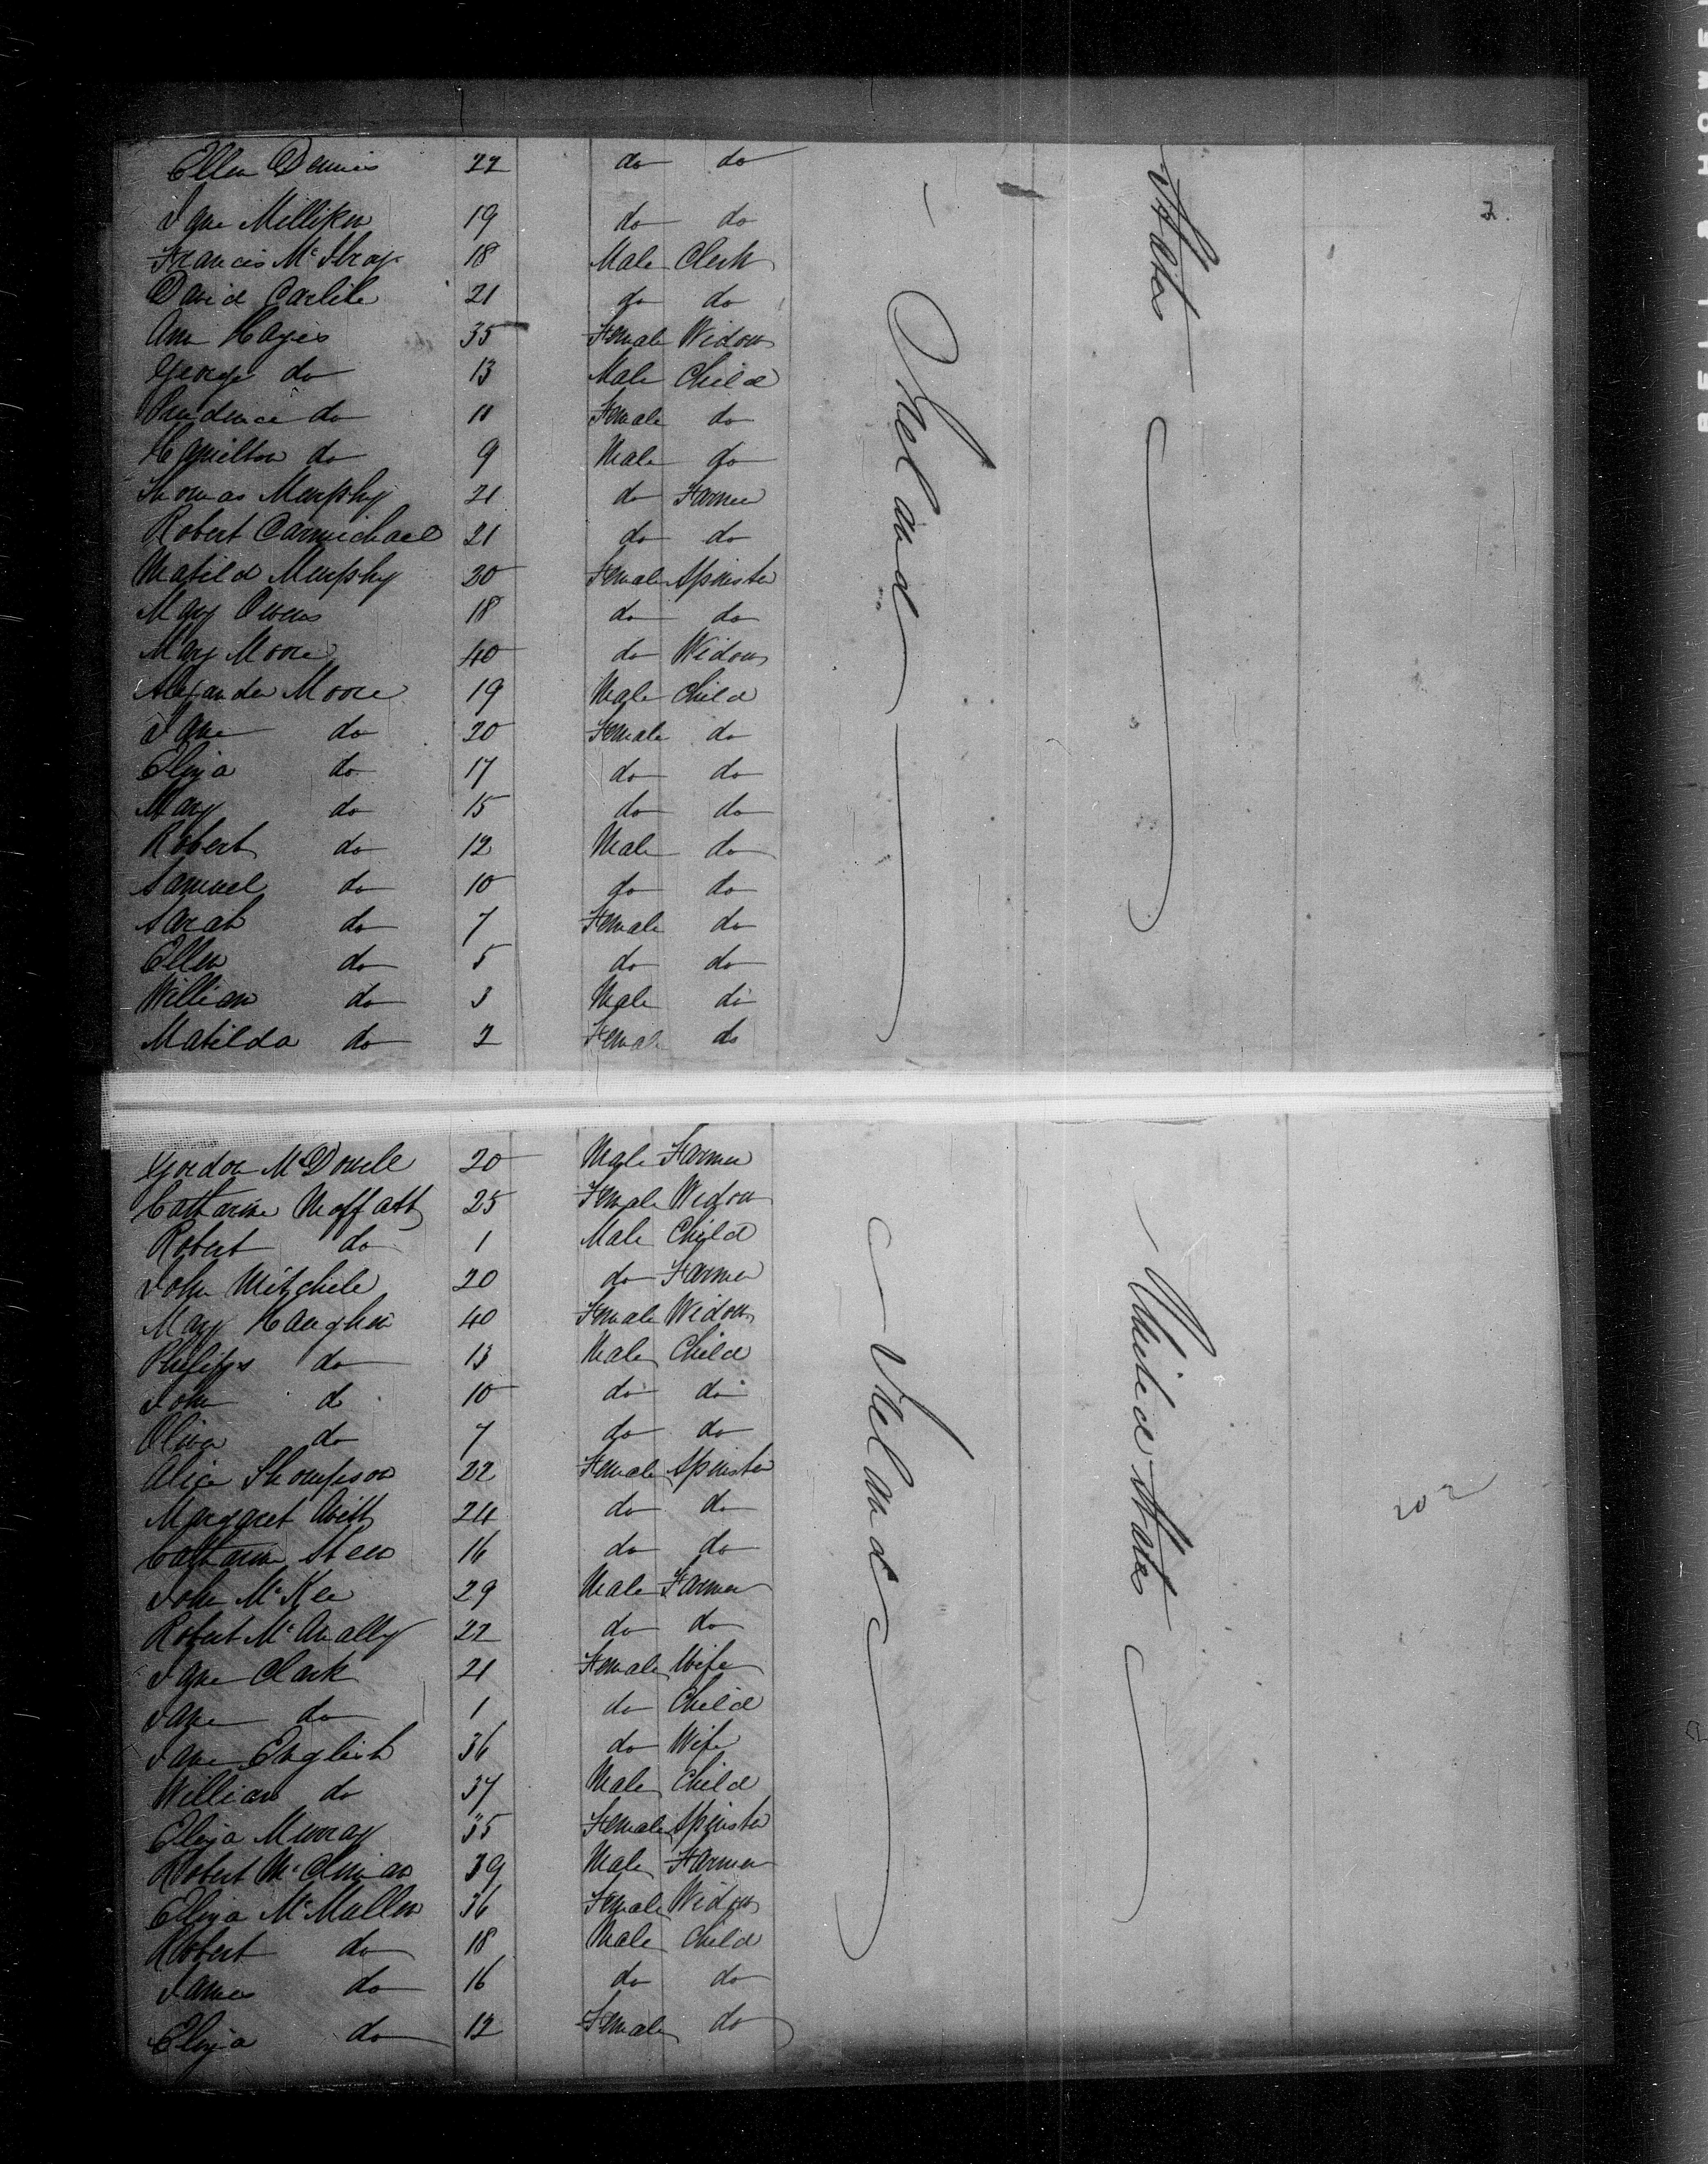 Ellen Dennis 22 do do
Jane Milliken 19 do do
Francis Mc 18 Male Clerk
David Carlile 21 do do
Ann Hayes 35 Female Widow
George do 13 Male Child
Prudence do 11 Female do
Hamilton do 9 Male do
Thomas Murphy 21 do Farmer
Robert Carmichael 21 do do
Matild Murphy 20 Female Spinster
Mary Owens 18 do do
Mary Moore 40 do Widow
Alexander Moore 19 Male Child
Jane do 20 Female do
Eliza do 17 do do
Mary do 15 do do
Robert do 12 Male do
Samuel do 10 do do
Sarah do 7 Female do
Ellen do 5 do do
William do 3 Male do
Matilda do 2 Female do
Ireland
States
2.
Gordon McDowell 20 Male Farmer
Catharine Moffatt 25 Female Widow
Robert do 1 Male Child
John Mitchele 20 do Farmer
Mary 40 Female Widow
Philips do 13 Male Child
John do 10 do do
Oliver do 7 do do
Alice Thompson 22 Female Spinster
Margaret 24 do do
Catharine Steen 16 do do
John McKee 29 Male Farmer
Robert McAnally 22 do do
Jane Clark 21 Female Wife
Jane do 1 do Child
Jane English 36 do Wife
William do 37 Male Child
Eliza Murray 35 Female Spinster
Robert 39 Male Farmer
Eliza McMullen 36 Female Widow
Robert do 18 Male Child
James do 16 do do
Eliza do 12 Female do
Ireland
United States
202